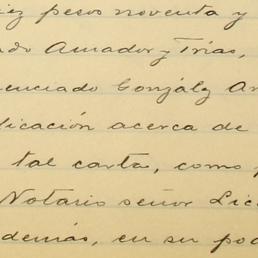 iez pesos noventa y
do Amador y Trías,
enciado Gonzálz An
licación acerca de
tal carta, como p
Notario señor Lic
demás, en su pod